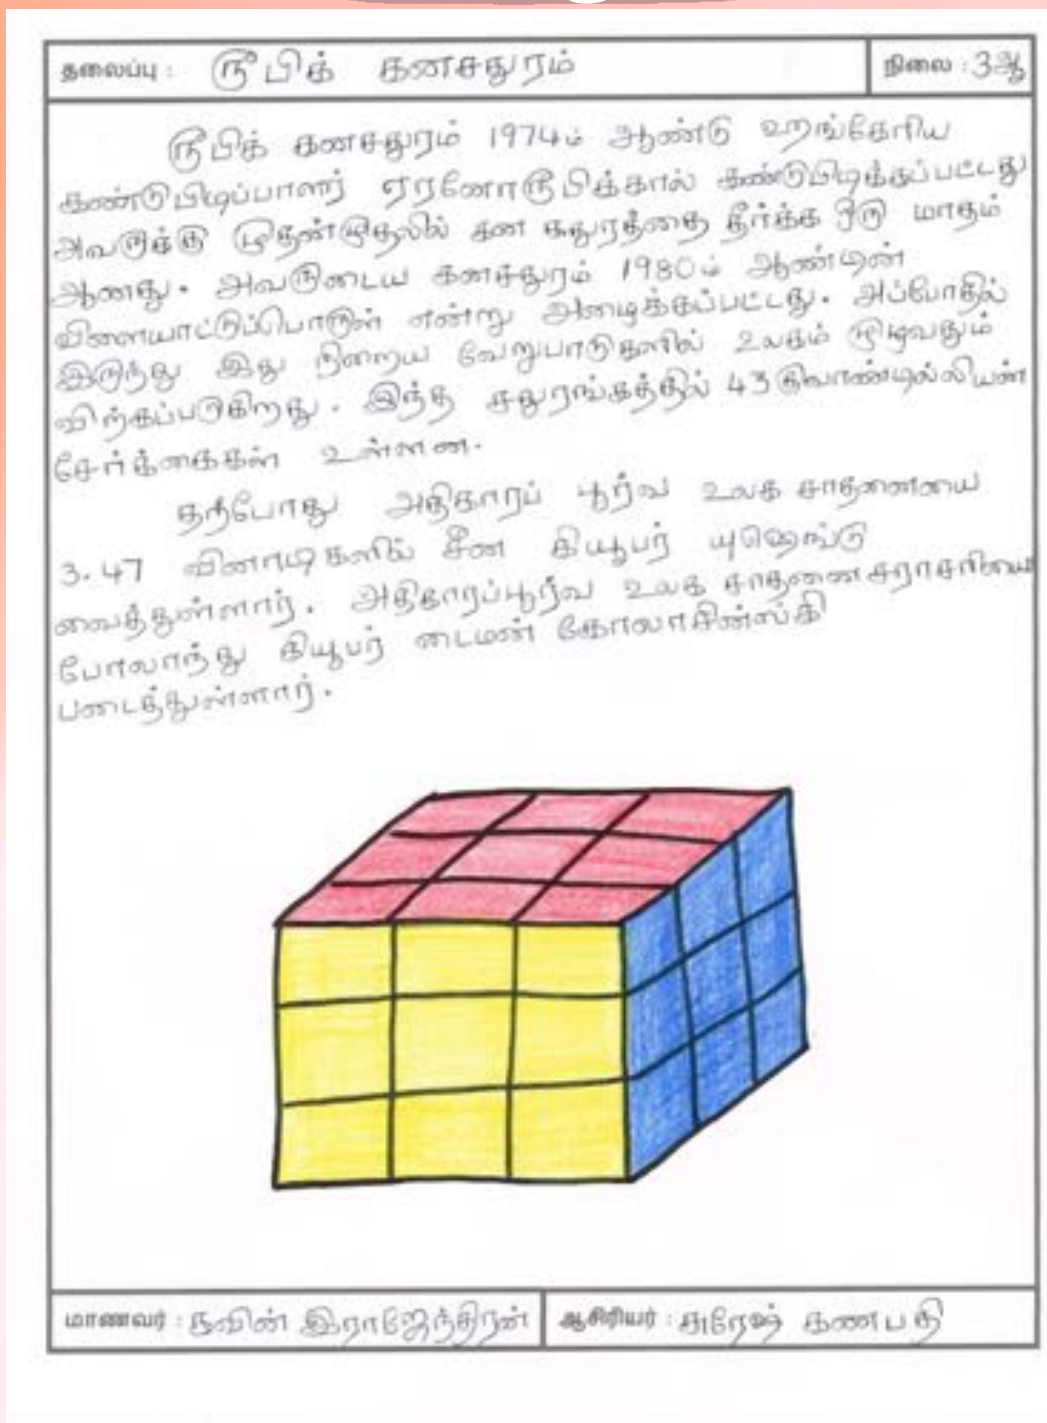 தலைப்பு : ரூபிக் கனசதுரம்
நிலை : 3ஆ
ரூபிக் கனசதுரம் 1974ம் ஆண்டு ஹங்கேரிய
கண்டுபிடிப்பாளர் ஏரனோரூபிக்கால் கண்டுபிடிக்கப்பட்டது
அவருக்கு முதன்முதலில் கன சதுரத்தை தீர்க்க ஒரு மாதம்
ஆனது. அவருடைய கனசதுரம் 1980ம் ஆண்டின்
விளையாட்டுப்பொருள் என்று அழைக்கப்பட்டது. அப்போதில்
இருந்து இது நிறைய வேறுபாடுகளில் உலகம் முழுவதும்
விற்கப்படுகிறது. இந்த சதுரங்கத்தில் 43 குவாண்டில்லியன்
சேர்க்கைகள் உள்ளன.
தற்போது அதிகாரப் பூர்வ உலக சாதனையை
3.47 வினாடிகளில் சீன கியூபர் யுஷெங்டு
வைத்துள்ளார். அதிகாரப்பூர்வ உலக சாதனை சராசரியை
போலாந்து கியூபர் டைமன் கோலாசின்ஸ்கி
படைத்துள்ளார்.
மாணவர் : நவின் இராஜேந்திரன்
ஆசிரியர் : சுரேஷ் கணபதி